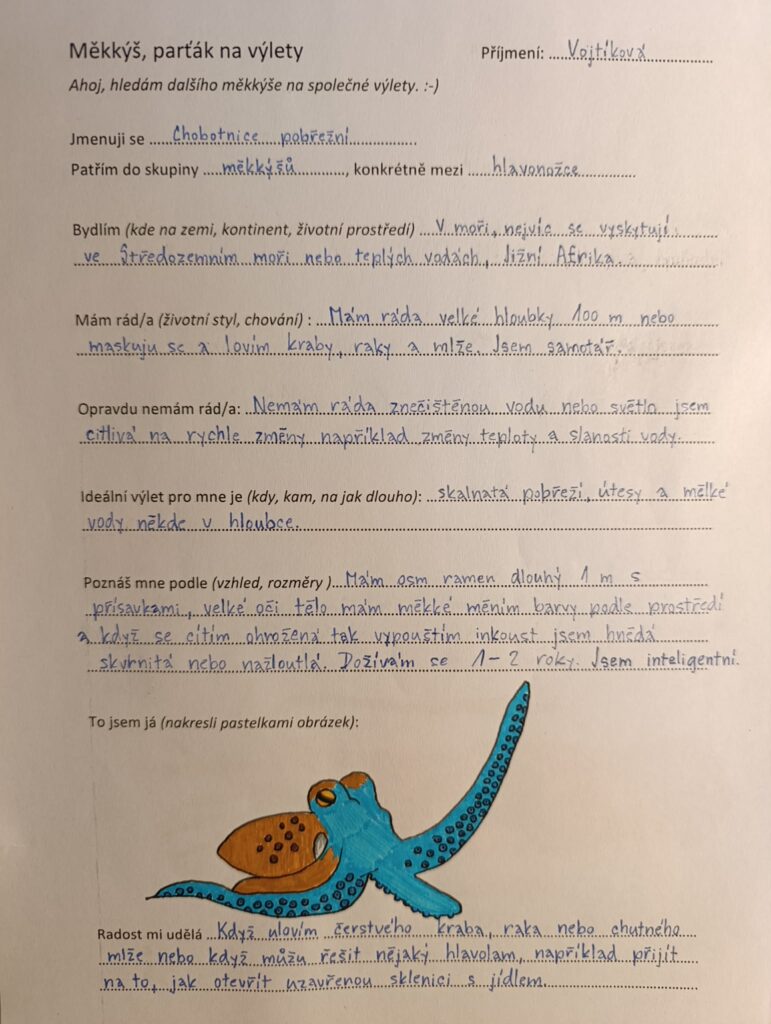 Měkkýš, parťák na výlety
Příjmení: Vojtíková
Ahoj, hledám dalšího měkkýše na společné výlety. :-)
Jmenuji se Chobotnice pobřežní
Patřím do skupiny měkkýšů, konkrétně mezi hlavonožce
Bydlím (kde na zemi, kontinent, životní prostředí) V moři, nejvíc se vyskytují
ve Středozemním moři nebo teplých vodách, Jižní Afrika.
Mám rád/a (životní styl, chování) : Mám ráda velké hloubky 100 m nebo
maskuju se a lovím kraby, raky a mlže. Jsem samotář.
Opravdu nemám rád/a: Nemám ráda znečištěnou vodu nebo světlo jsem
citlivá na rychle změny například změny teploty a slanosti vody.
Ideální výlet pro mne je (kdy, kam, na jak dlouho): skalnatá pobřeží, útesy a mělké
vody někde v hloubce.
Poznáš mne podle (vzhled, rozměry ) Mám osm ramen dlouhý 1 m s
přísavkami, velké oči tělo mám měkké měním barvy podle prostředí
a když se cítím ohrožená tak vypouštím inkoust jsem hnědá
skvrnitá nebo nažloutlá. Dožívám se 1-2 roky. Jsem inteligentní.
To jsem já (nakresli pastelkami obrázek):
Radost mi udělá Když ulovím čerstvého kraba, raka nebo chutného
mlže nebo když můžu řešit nějaký hlavolam, například přijít
na to, jak otevřít uzavřenou sklenici s jídlem.